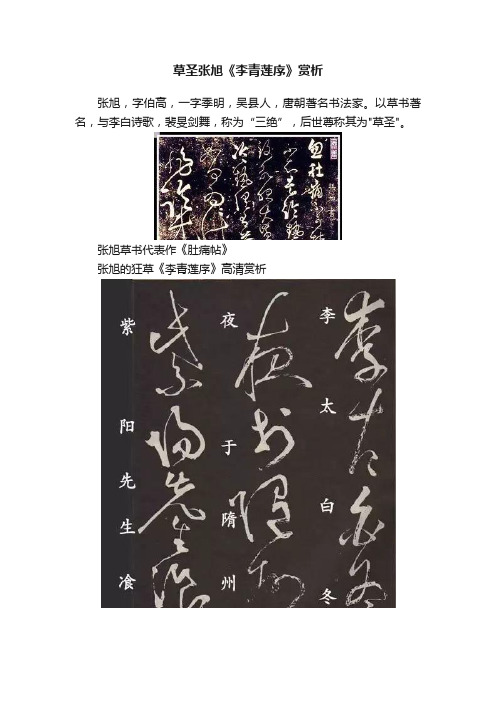 草圣张旭《李青莲序》赏析
张旭，字伯高，一字季明，吴县人，唐朝著名书法家。以草书著
名，与李白诗歌，裴旻剑舞，称为“三绝”，后世尊称其为"草圣"。
忽肚痛不可
张旭草书代表作《肚痛帖》
张旭的狂草《李青莲序》高清赏析
李太白冬
李太白冬
夜于隋州
夜于隋州
紫阳先生飡
紫阳先生飡